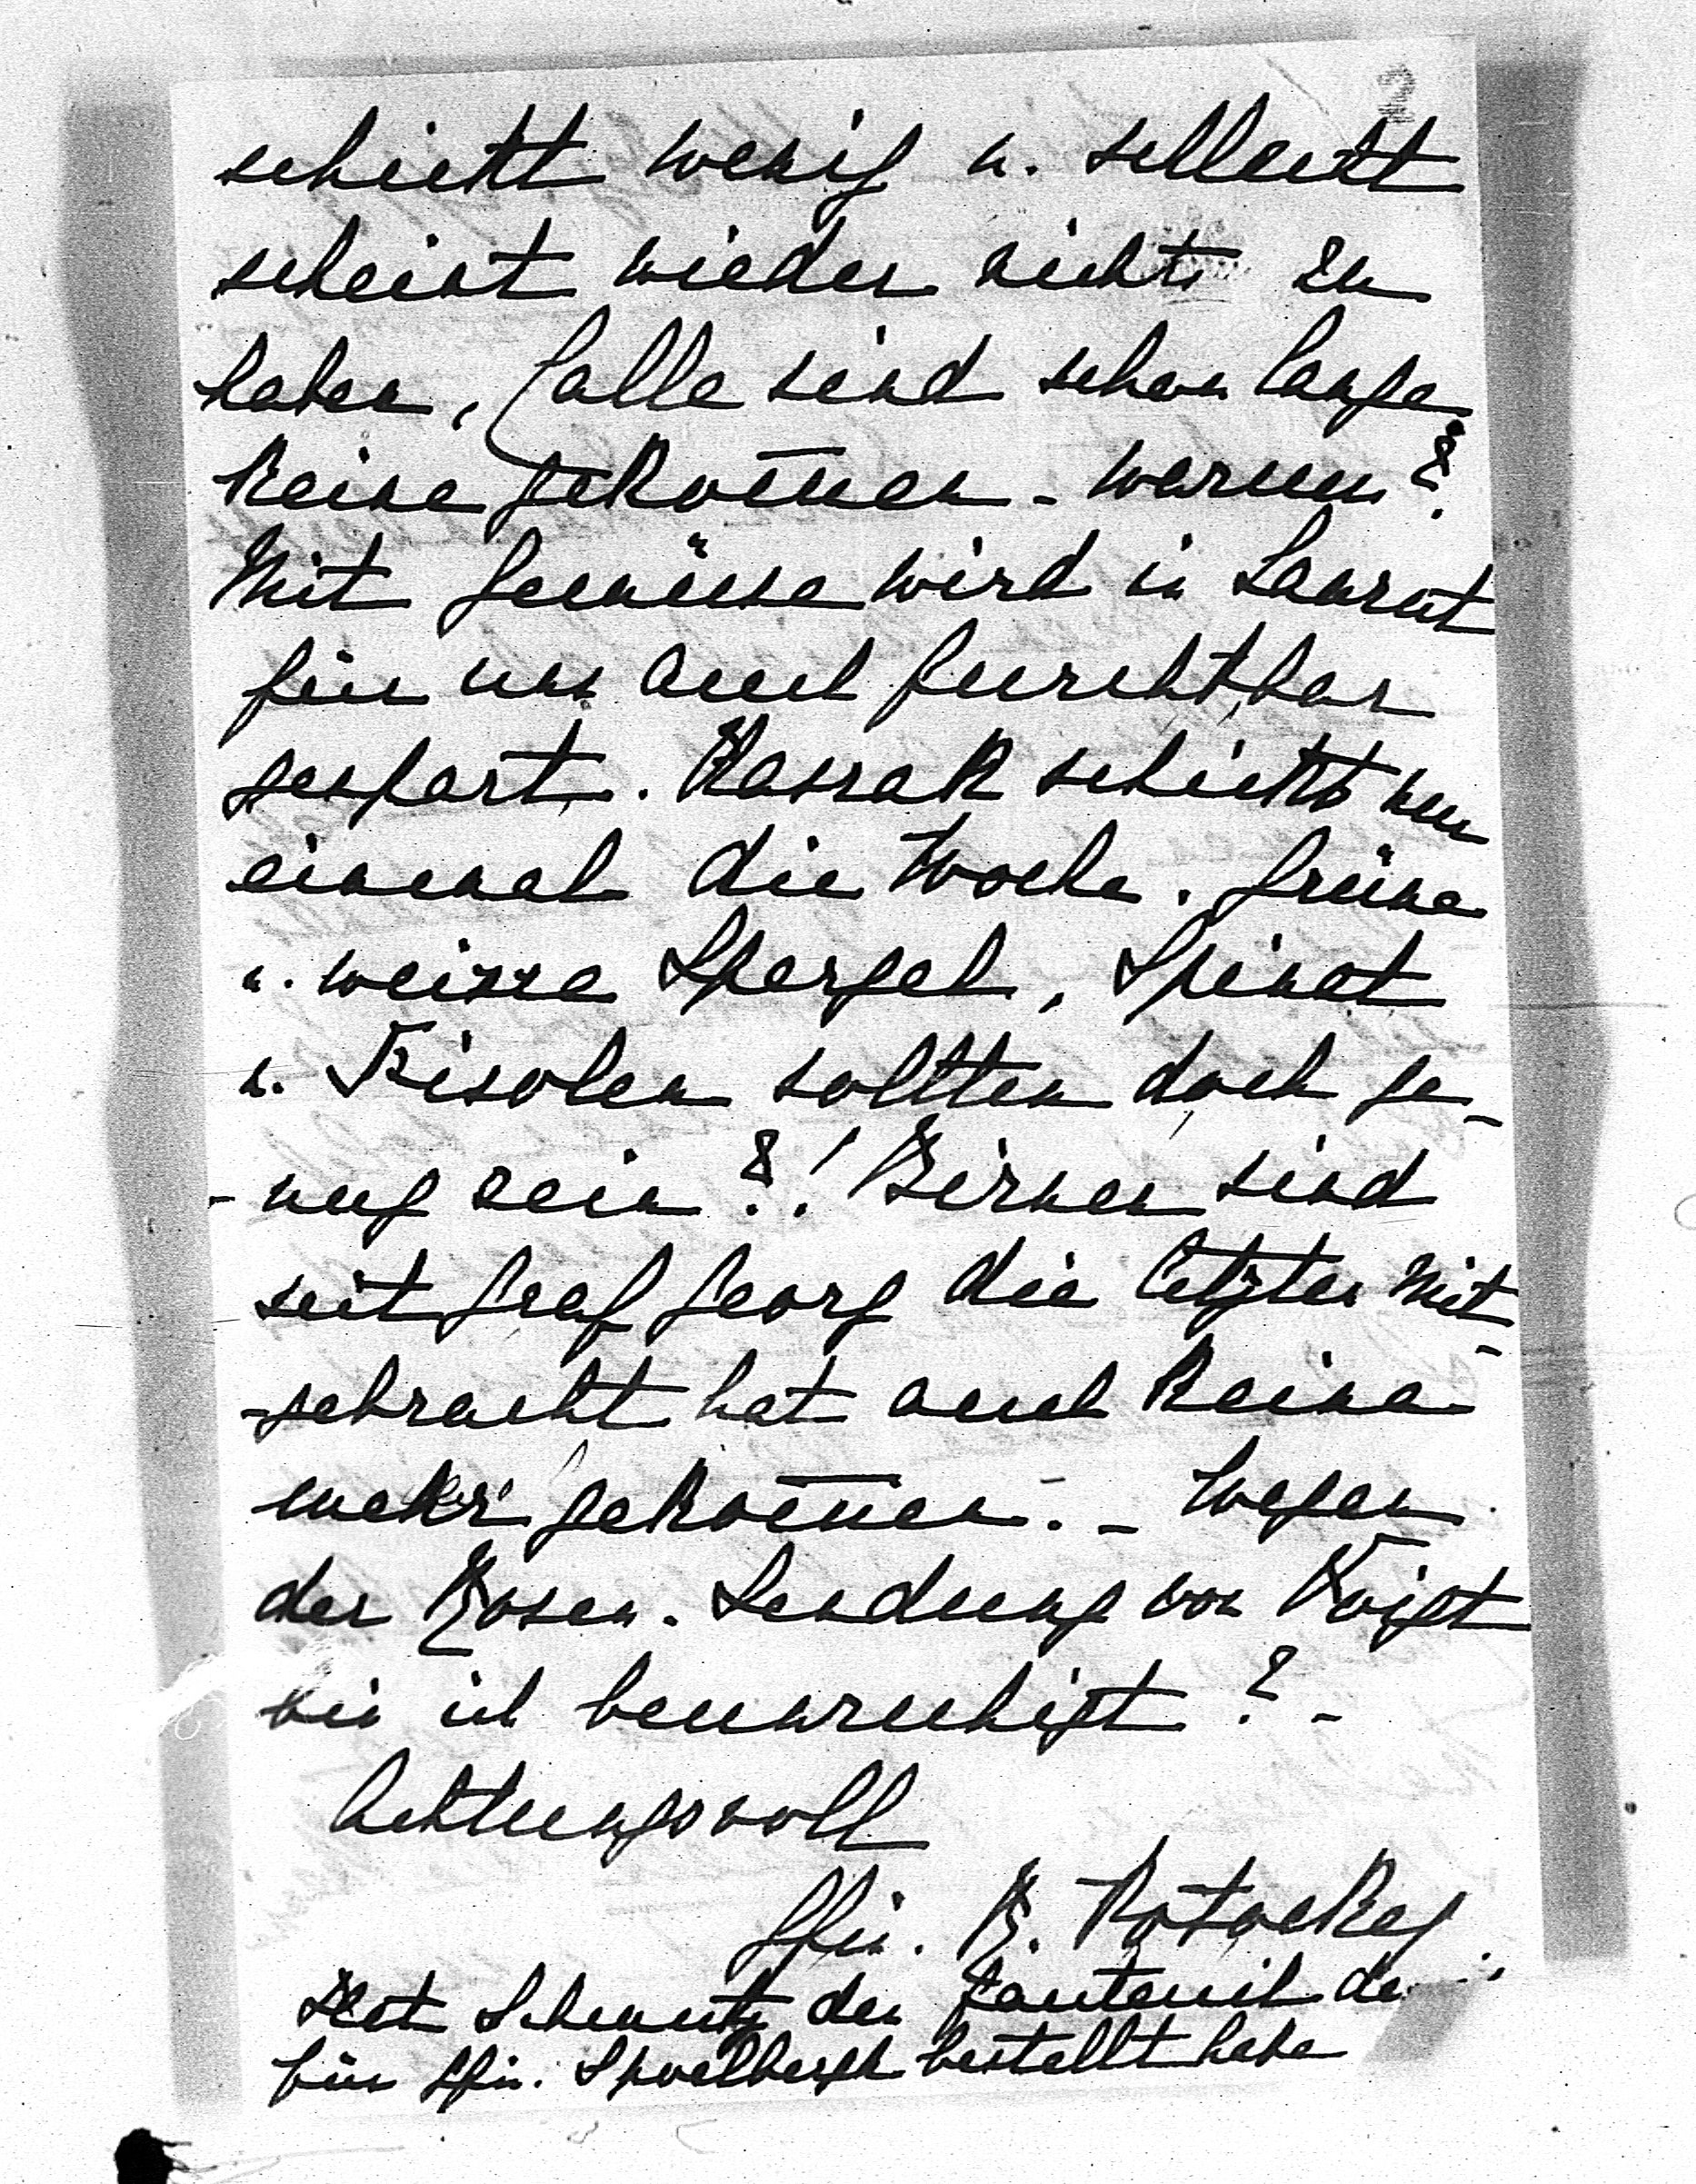 schickt wenig u. schlecht
scheint wieder nichts zu
haben, Aalle sind schon lange
keine gekom̄en - warum?
Mit Gemüse wird in Lanzut
für uns auch furchtbar
gespart. Kassak schickt nur
einmal die Woche. Grüne
u. weisse Spargel, Spinat
u. Fisolen sollten doch ge-
-nug sein?! Birnen sind
seit Graf Georg die letzten mit-
-gebracht hat auch keine
mehr gekom̄en. - Wegen
der Rosen-Sendung von Voigt
bin ich beunruhigt? -
Achtungsvoll
Gfin. B. Potocka
Hat Schmutz den Fauteuil de
für Gfin. Spoelbergh bestellt habe